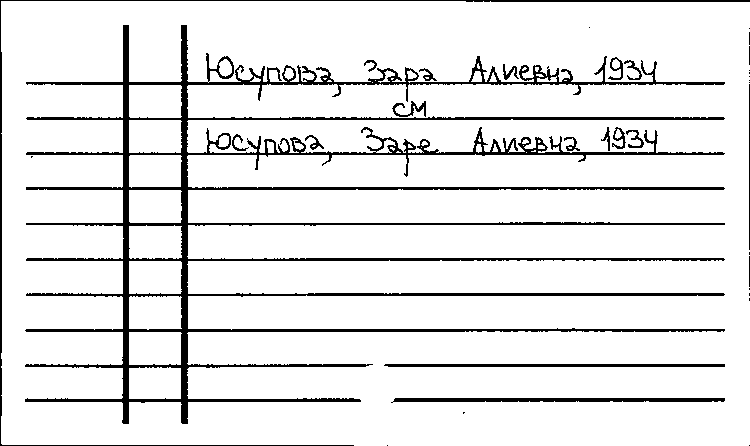 Юсупова, Зара Алиевна, 1934
см
Юсупова, Заре Алиевна, 1934